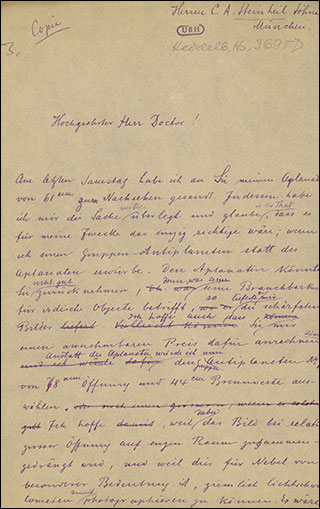 Copie
Herren C. A. Steinheil Söhne
München.
UBH
Heidelb. Hs. 3695 D
3.
Hochgeehrter Herr Doctor!
Am letzten Samstag habe ich an Sie meinen Aplanat
von 61 mm zum Nachsehen gesandt. Indessen habe
ich mir die Sache überlegt und glaube, dass es
in der That
für meine Zwecke das einzig richtige wäre, wenn
ich einen Gruppen Antiplaneten statt des
Aplanaten erwürbe. Den Aplanaten könnten
nicht gut
Sie zurücknehmen, denn was seine Brauchbarkeit
für irdische Objecte betrifft, so lieferte mir die schärfsten
Bilder Ich hoffe auch dass Sie mir
einen annehmbaren Preis dafür anrechnen
Anstatt des Aplanaten würde ich nun
den Gruppen Antiplaneten No
von 78 mm Öffnung und 44 cm Brennweite aus-
wählen.
Ich hoffe weil, das Bild bei relativ
grosser Öffnung auf engen Raum zusammen-
gedrängt wird, und weil dies für Nebel von
besonderer Bedeutung ist, ziemlich lichtschwache
Cometen photographieren zu können. Es wäre